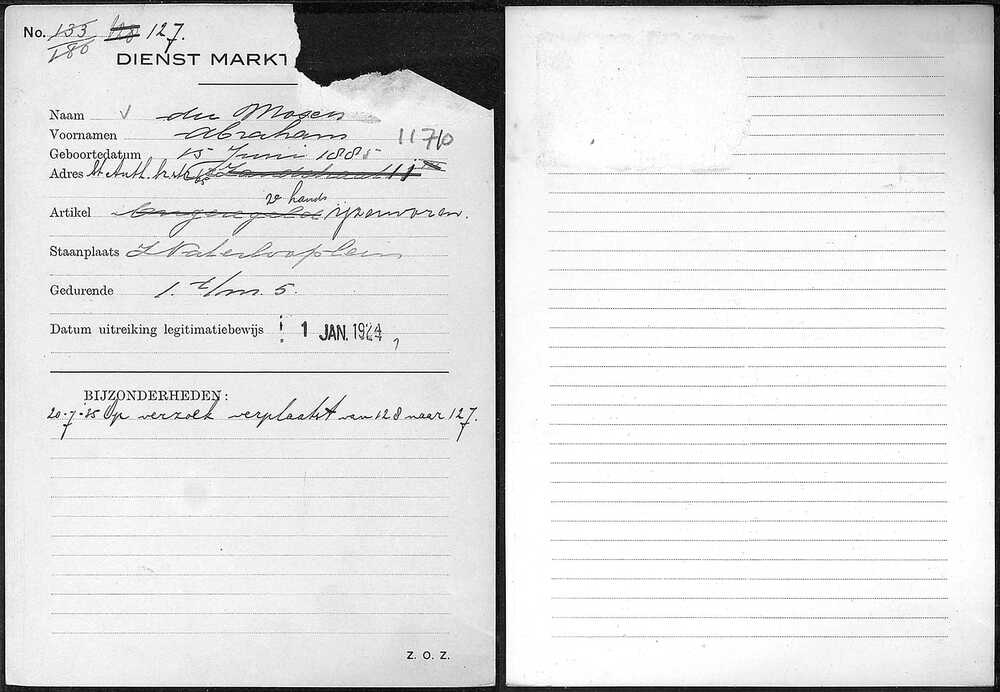 No. 133/186 128 127.
DIENST MARKT
Naam V du Mosen
Voornamen Abraham
1170
Geboortedatum 15 Juni 1885
Adres St Anth. br.str. 65 Zandstraat 11
2e hands
Artikel ijzerwaren.
Staanplaats Waterlooplein
Gedurende 1 t/m. 5.
Datum uitreiking legitimatiebewijs 1 JAN. 1924
BIJZONDERHEDEN:
20-7-25 Op verzoek verplaatst van 128 naar 127.
Z. O. Z.